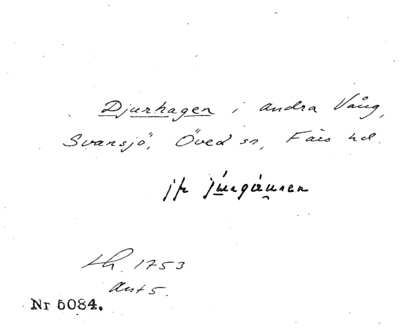 Djurhagen i andra Vång,
Svansjö, Öved sn, Färs hd.
jfr
Lh. 1753
Ant 5.
Nr 5084.